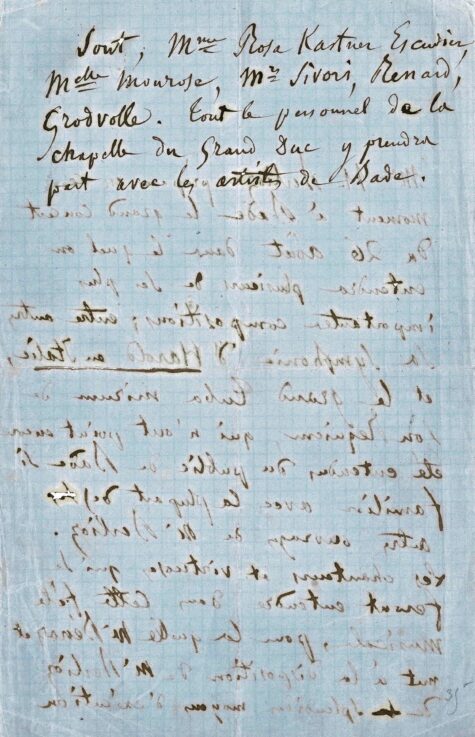 Sont, Mme Rosa Kastner Escudier,
Melle Monrose, Mrs Sivori, Remard,
Grodvolle. Tout le personnel de la
chapelle du Grand Duc y prendra
part avec les artistes de Bade.
moment à Bade le grand concert
du 26 août dans le quel on
entendra plusieurs de ses plus
importantes compositions, entre autres
la Symphonie d'Harold en Italie,
et le grand tuba mirum de
son Requiem, qui n'ont point encore
été entendus du public de Bade si
familier avec la plupart des
autres ouvrages de Mr Berlioz.
Les chanteurs et virtuoses qui se
feront entendre dans cette fête
musicale, pour la quelle Mr Benazet
met à la disposition de Mr Berlioz
de splendides moyens d'exécution